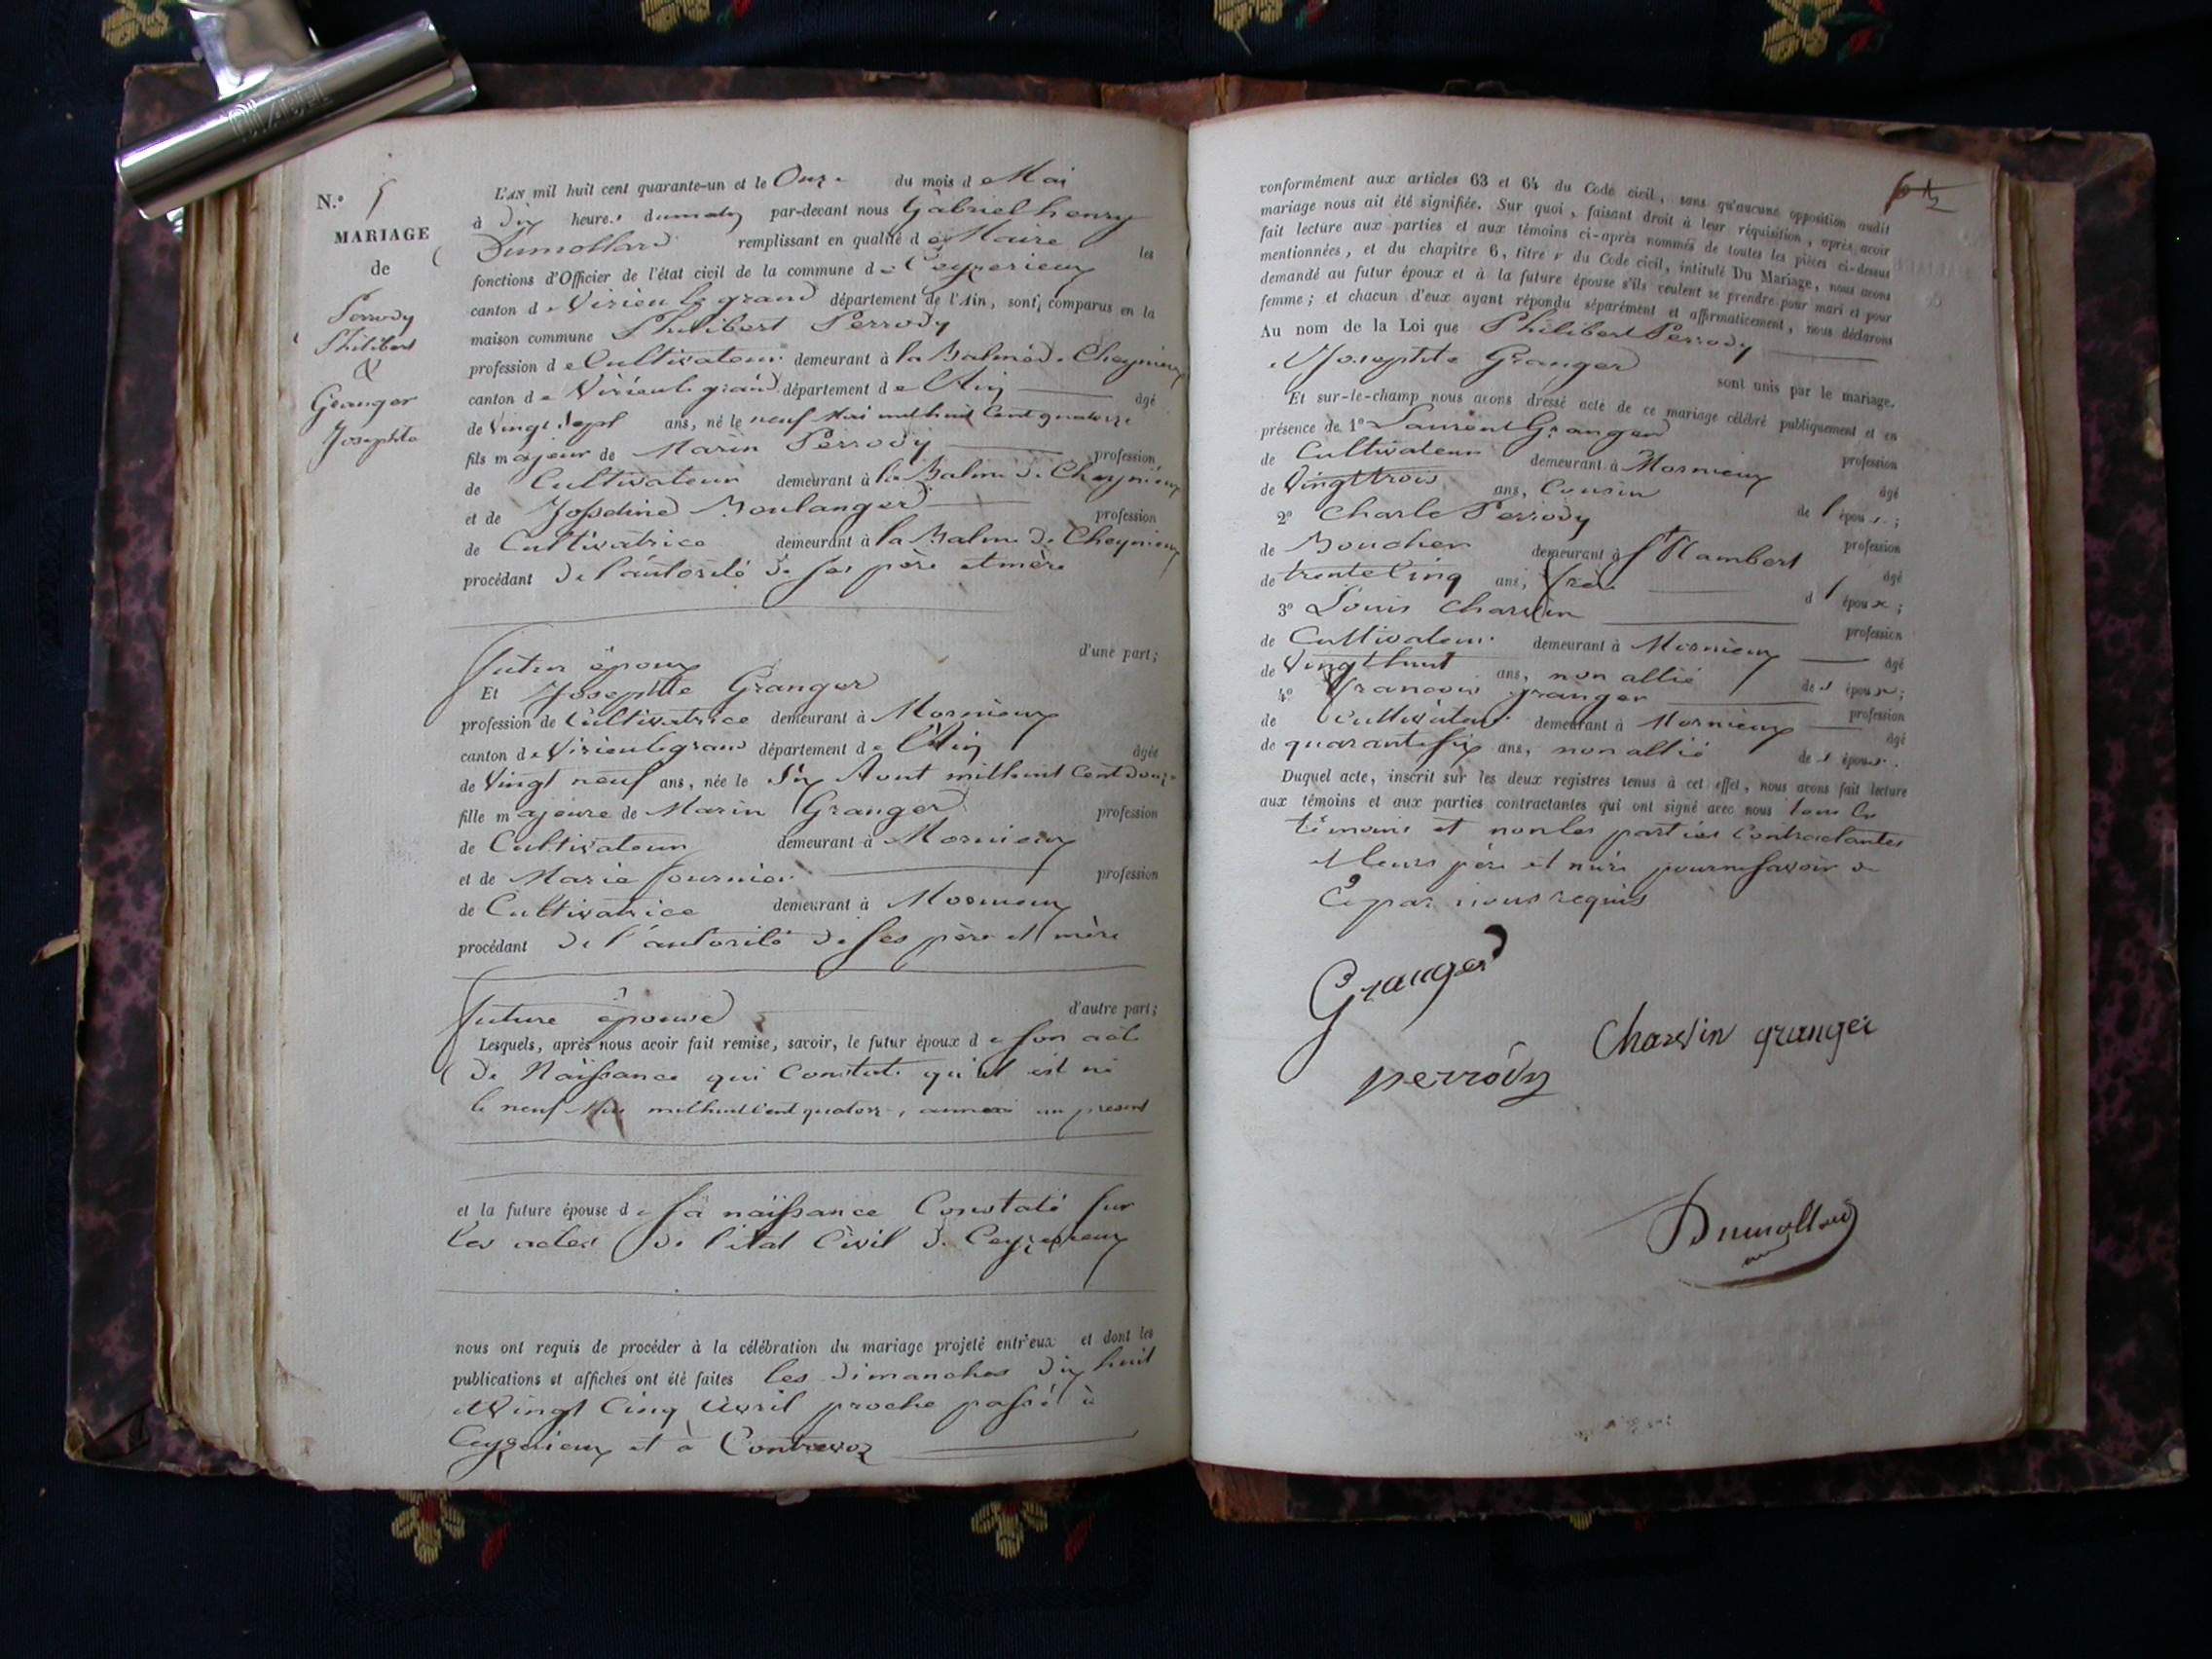 N.º 5
MARIAGE
de
Perrody
Philibert
&
Granger
Josephte
L'AN mil huit cent quarante-un et le Onze du mois de Mai
à Dix heures dumatin par-devant nous Gabriel henry
Dumollard remplissant en qualité de Maire les
fonctions d'Officier de l'état civil de la commune de Ceyzerieux
canton de Virieu le grand département de l'Ain, sont comparus en la
maison commune Philibert Perrody
profession de Cultivateur demeurant à la Balme de Cheynieux
canton de Virieu le grand département de l'Ain âgé
de Vingt Sept ans, né le neuf Mai mil huit Cent quatorze
fils majeur de Marin Perrody profession
de Cultivateur demeurant à la Balme de Cheynieux
et de Josseline Boulanger profession
de Cultivatrice demeurant à la Balme de Cheynieux
procédant de l'autorité de ses père et mère
futur époux d'une part;
Et Josephte Granger
profession de Cultivatrice demeurant à Mornieux
canton de Virieu le grand département de l'Ain âgée
de Vingt neuf ans, née le Six Aout mil huit Cent Douze
fille majeure de Marin Granger profession
de Cultivateur demeurant à Mornieux
et de Marie fournier profession
de Cultivatrice demeurant à Mornieux
procédant de l'autorité de ses père et mère
future épouse d'autre part;
Lesquels, après nous avoir fait remise, savoir, le futur époux de son acte
de Naissance qui Constate qu'il est né
le neuf Mai mil huit Cent quatorze, annexé au présent
et la future épouse de sa naissance Constaté sur
les actes de l'état Civil de Ceyzerieux
nous ont requis de procéder à la célébration du mariage projeté entr'eux et dont les
publications et affiches ont été faites les dimanches dix huit
et Vingt Cinq Avril proche passé à
Ceyzerieux et à Contrevoz
conformément aux articles 63 et 64 du Code civil, sans qu'aucune opposition audit
mariage nous ait été signifiée. Sur quoi, faisant droit à leur réquisition, après avoir
fait lecture aux parties et aux témoins ci-après nommés de toutes les pièces ci-dessus
mentionnées, et du chapitre 6, titre v du Code civil, intitulé Du Mariage, nous avons
demandé au futur époux et à la future épouse s'ils veulent se prendre pour mari et pour
femme; et chacun d'eux ayant répondu séparément et affirmativement, nous déclarons
Au nom de la Loi que Philibert Perrody
et Josephte Granger sont unis par le mariage.
Et sur-le-champ nous avons dressé acte de ce mariage célébré publiquement et en
présence de 1º Laurent Granger profession
de Cultivateur demeurant à Mornieux âgé
de Vingt trois ans, Cousin de l'épouse;
2º Charle Perrody profession
de Boucher demeurant à St Rambert âgé
de trente Cinq ans, frère d l'époux;
3º Louis Charvin profession
de Cultivateur demeurant à Mornieux âgé
de Vingt huit ans, non allié des époux;
4º francois granger profession
de Cultivateur demeurant à Mornieux âgé
de quarante six ans, non allié des époux.
Duquel acte, inscrit sur les deux registres tenus à cet effet, nous avons fait lecture
aux témoins et aux parties contractantes qui ont signé avec nous tous les
témoins et non les parties Contractantes
et leurs père et mère pour ne savoir de
Ce par nous requis
Granger
Charvin granger
perrody
Dumollard